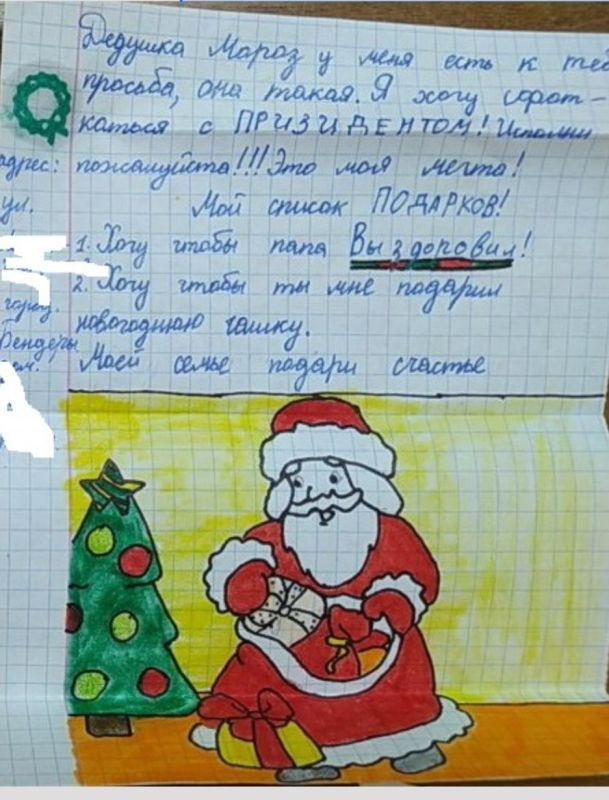 Дедушка Мороз у меня есть к теб
просьба, она такая. Я хочу сфот-
каться с ПРИЗИДЕНТОМ! Исполни
пожалуйста!!! Это моя мечта!
Мой список ПОДАРКОВ!
1. Хочу чтобы папа Выздоровил!
2. Хочу чтобы ты мне подарил
новогоднюю чашку.
Моей семье подари счастье
адрес:
ул.
город.
Бендеры